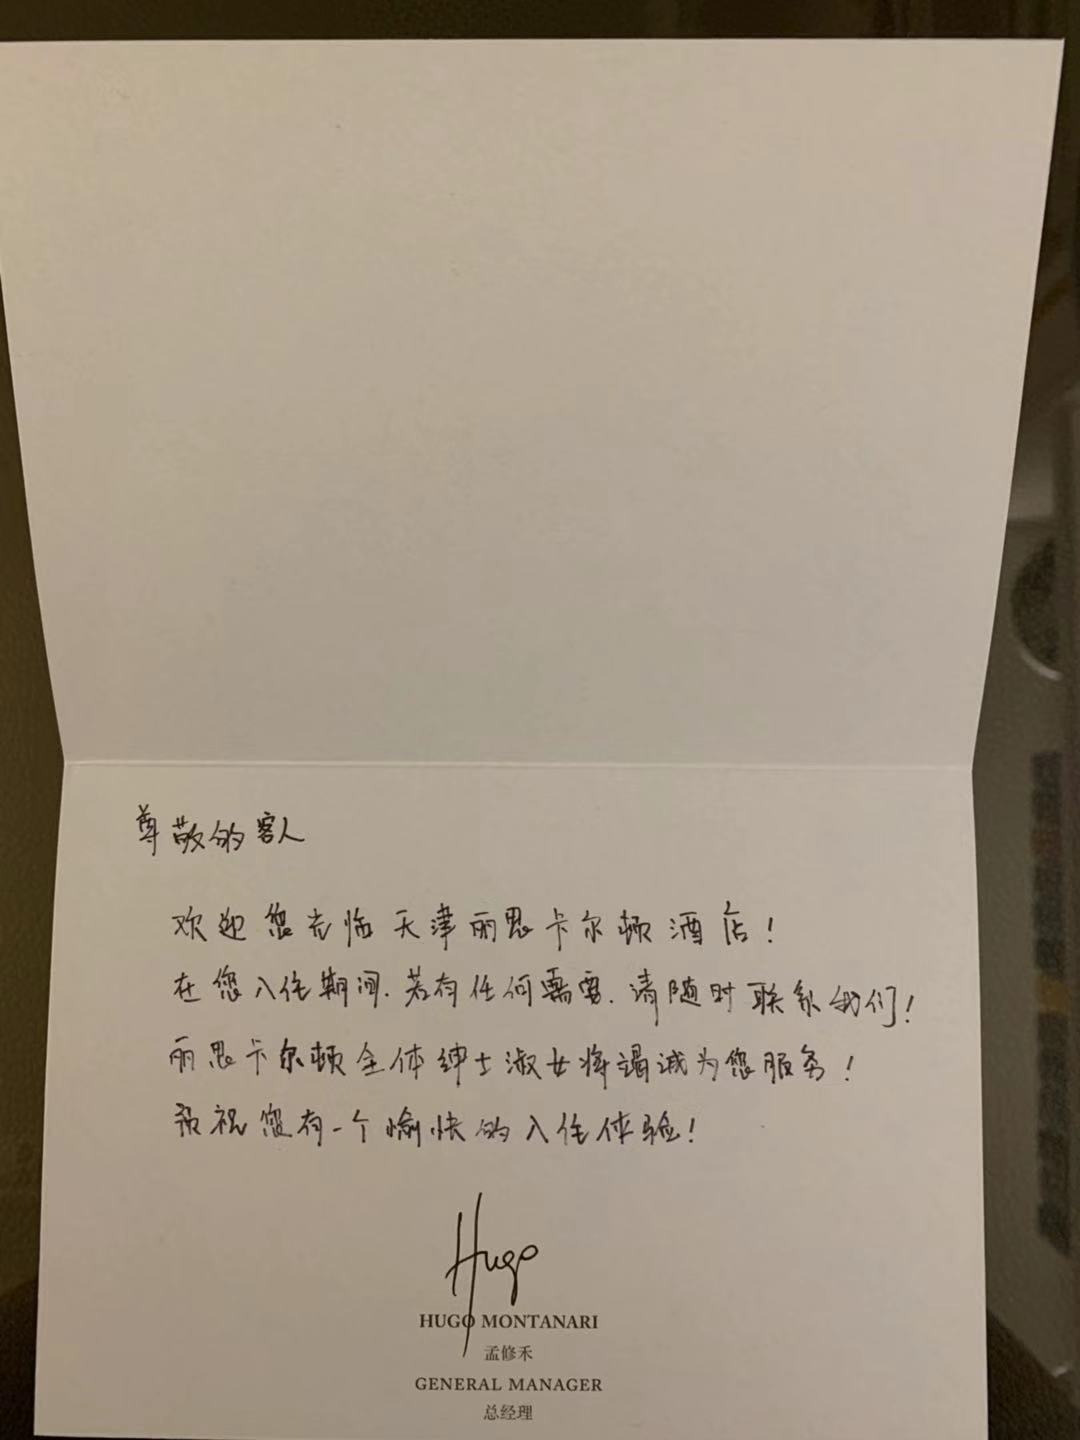 尊敬的客人
欢迎您光临天津丽思卡尔顿酒店!
在您入住期间.若有任何需要.请随时联系我们!
丽思卡尔顿全体绅士淑女将竭诚为您服务!
预祝您有一个愉快的入住体验!
Hugo
HUGO MONTANARI
孟修禾
GENERAL MANAGER
总经理